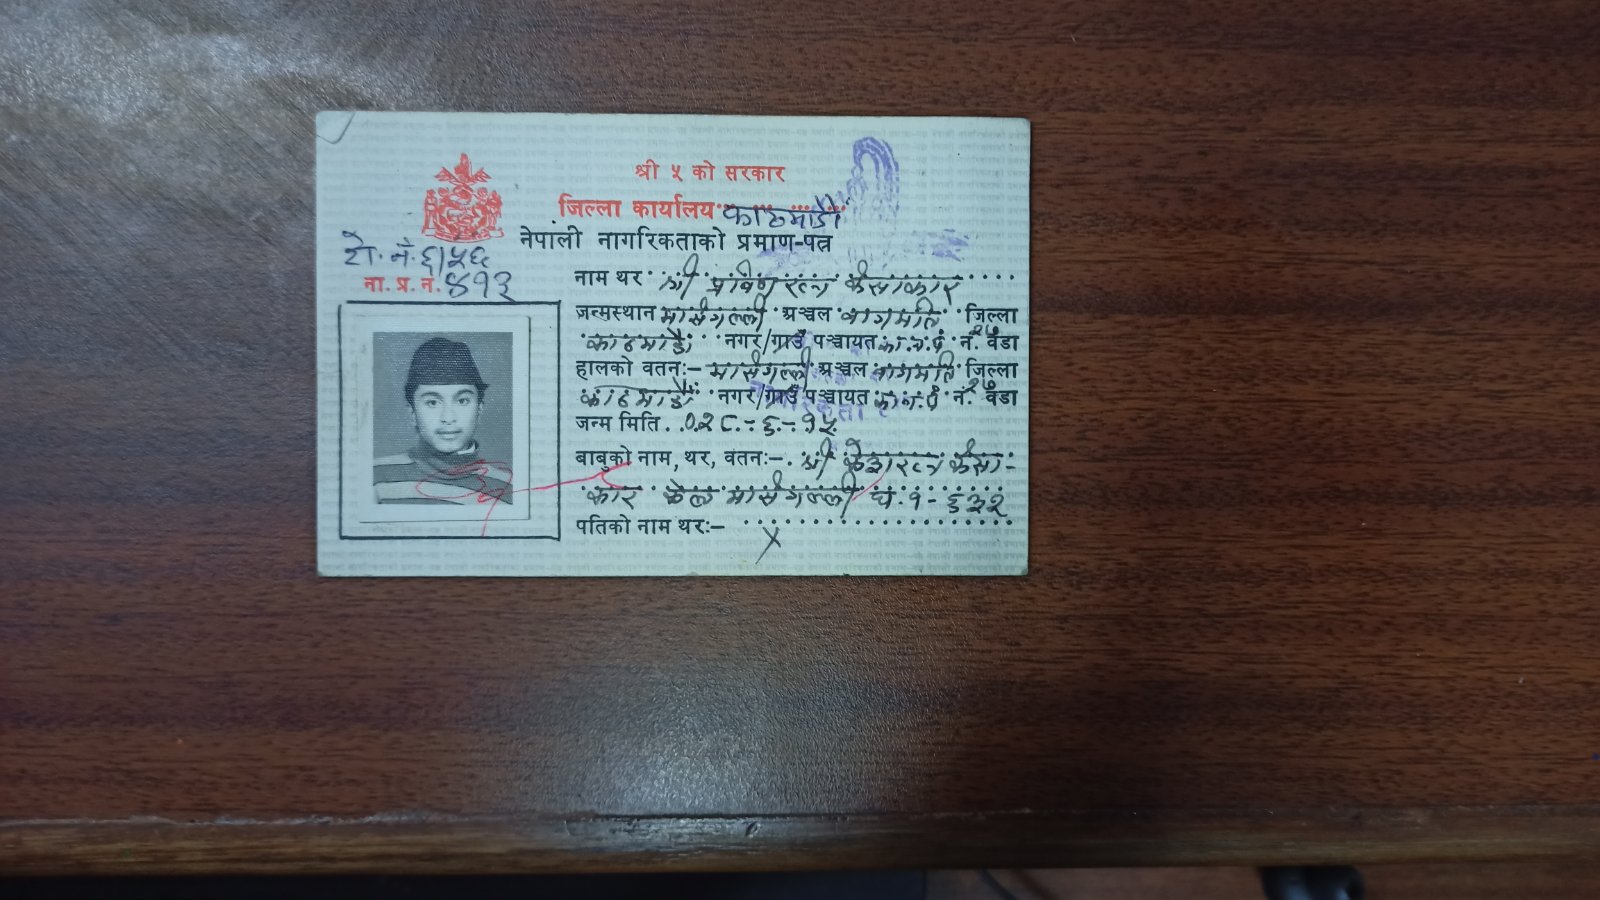 श्री ५ को सरकार
जिल्ला कार्यालय काठमाडौं
नेपाली नागरिकताको प्रमाण-पत्र
टो. नं. ६/५६
ना. प्र. न. ४१३
नाम थर श्री प्रविण रत्न कंसाकार
जन्मस्थान मासंगल्ली अञ्चल बागमति जिल्ला
काठमाडौं नगर/गाउँ पञ्चायत का.न.पं नं. वडा
हालको वतनः- मासंगल्ली अञ्चल बागमति जिल्ला
काठमाडौं नगर/गाउँ पञ्चायत का.न.पं नं. वडा
जन्म मिति ०२८-६-१५
बाबुको नाम, थर, वतनः- श्री रत्न कंसा-
कार केल मासंगल्ली घ. १-६३२
पतिको नाम थरः- X